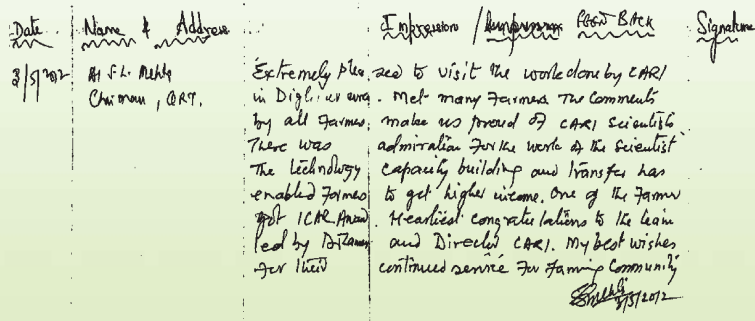 Date Name & Address Impression / FEED BACK Signature
3/5/2012 S.L. Mehta Extremely pleased to visit the work done by CARI
Chairman, QRT. in Diglipur area. Met many Farmers The Comments
by all Farmers make us proud of CARI Scientists
There was admiration For the work of the Scientist
The technology capacity building and transfer has
enabled Farmers to get higher income. One of the Farmer
got ICAR Award Heartiest congratulations to the team
led by and Director CARI. My best wishes
For their continued service For Farming Community
3/5/2012